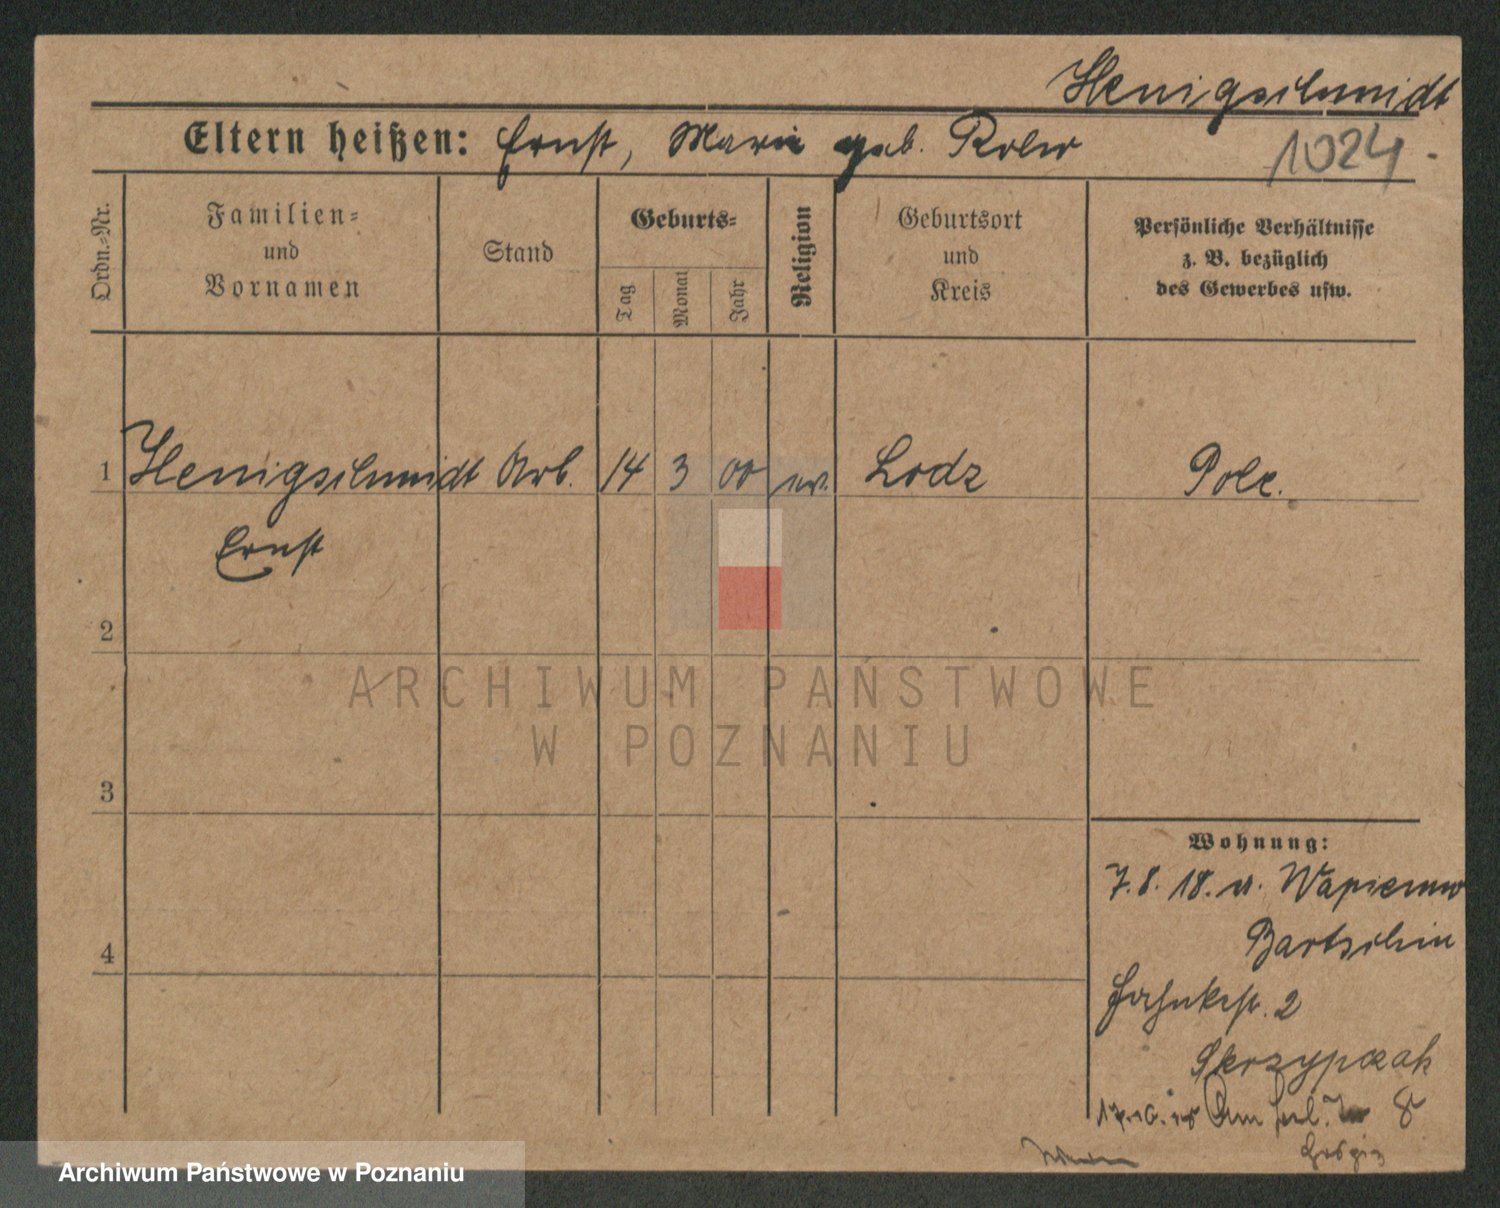 Henigschmidt
Eltern heißen: Ernst, Marie geb.
1024
Ordn.-Nr.
Familien-
und
Vornamen
Stand
Geburts-
Tag
Monat
Jahr
Religion
Geburtsort
und
Kreis
Persönliche Verhältnisse
z. B. bezüglich
des Gewerbes usw.
1 Henigschmidt Arb. 14 3 00 ev. Lodz Pole.
Ernst
2
3
4
Wohnung:
7.8.18. v.
Bartschin
2
Skrzypczak
8
ARCHIWUM PAŃSTWOWE
W POZNANIU
Archiwum Państwowe w Poznaniu